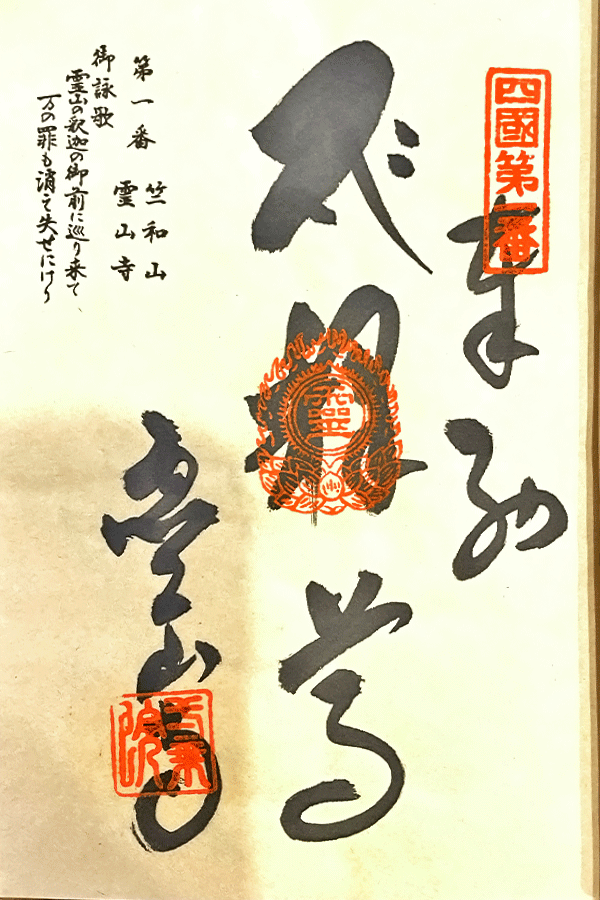 四國第一番
奉納
尊
靈
霊山寺
一乗院
第一番
竺和山
霊山寺
御詠歌
霊山の釈迦の御前に巡り来て
万の罪も消え失せにけり